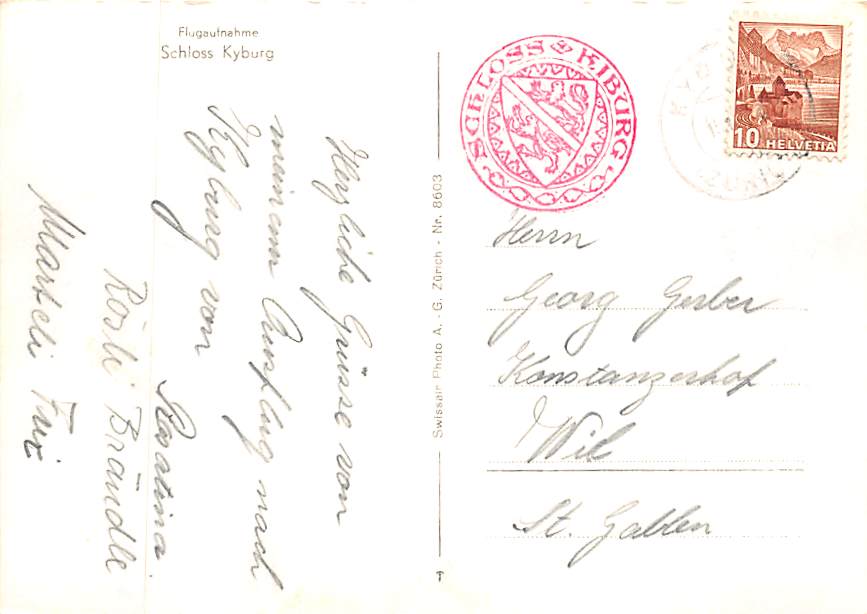 Flugaufnahme
Schloss Kyburg
Herzliche Grüsse von
meinem Ausflug nach
Kyburg von
Rösli Brändle
Swissair Photo A.-G. Zürich - Nr. 8603
SCHLOSS KIBURG
10 HELVETIA
Herrn
Georg Gerber
Konstanzerhof
Wil
St. Gallen